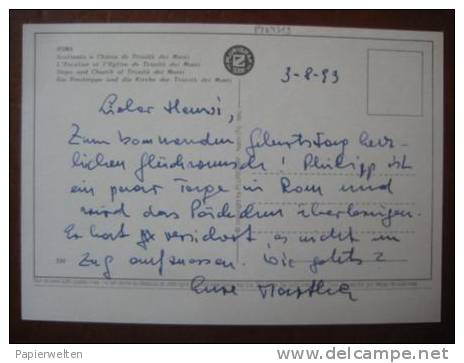 ROMA
Scalinata e Chiesa di Trinità dei Monti
L'Escalier et l'Eglise de Trinità dei Monti
Steps and Church of Trinità dei Monti
Die Freitreppe und die Kirche der Trinità dei Monti
3-8-93
Lieber Henri,
Zum kommenden Geburtstag herz-
lichen Glückwunsch! Philipp ist
ein paar Tage in Rom und
wird das Päckchen überbringen.
Er hat versichert, es nicht im
Zug aufzuessen. Wie gehts?
Eure
Papierwelten
www.delcampe.net